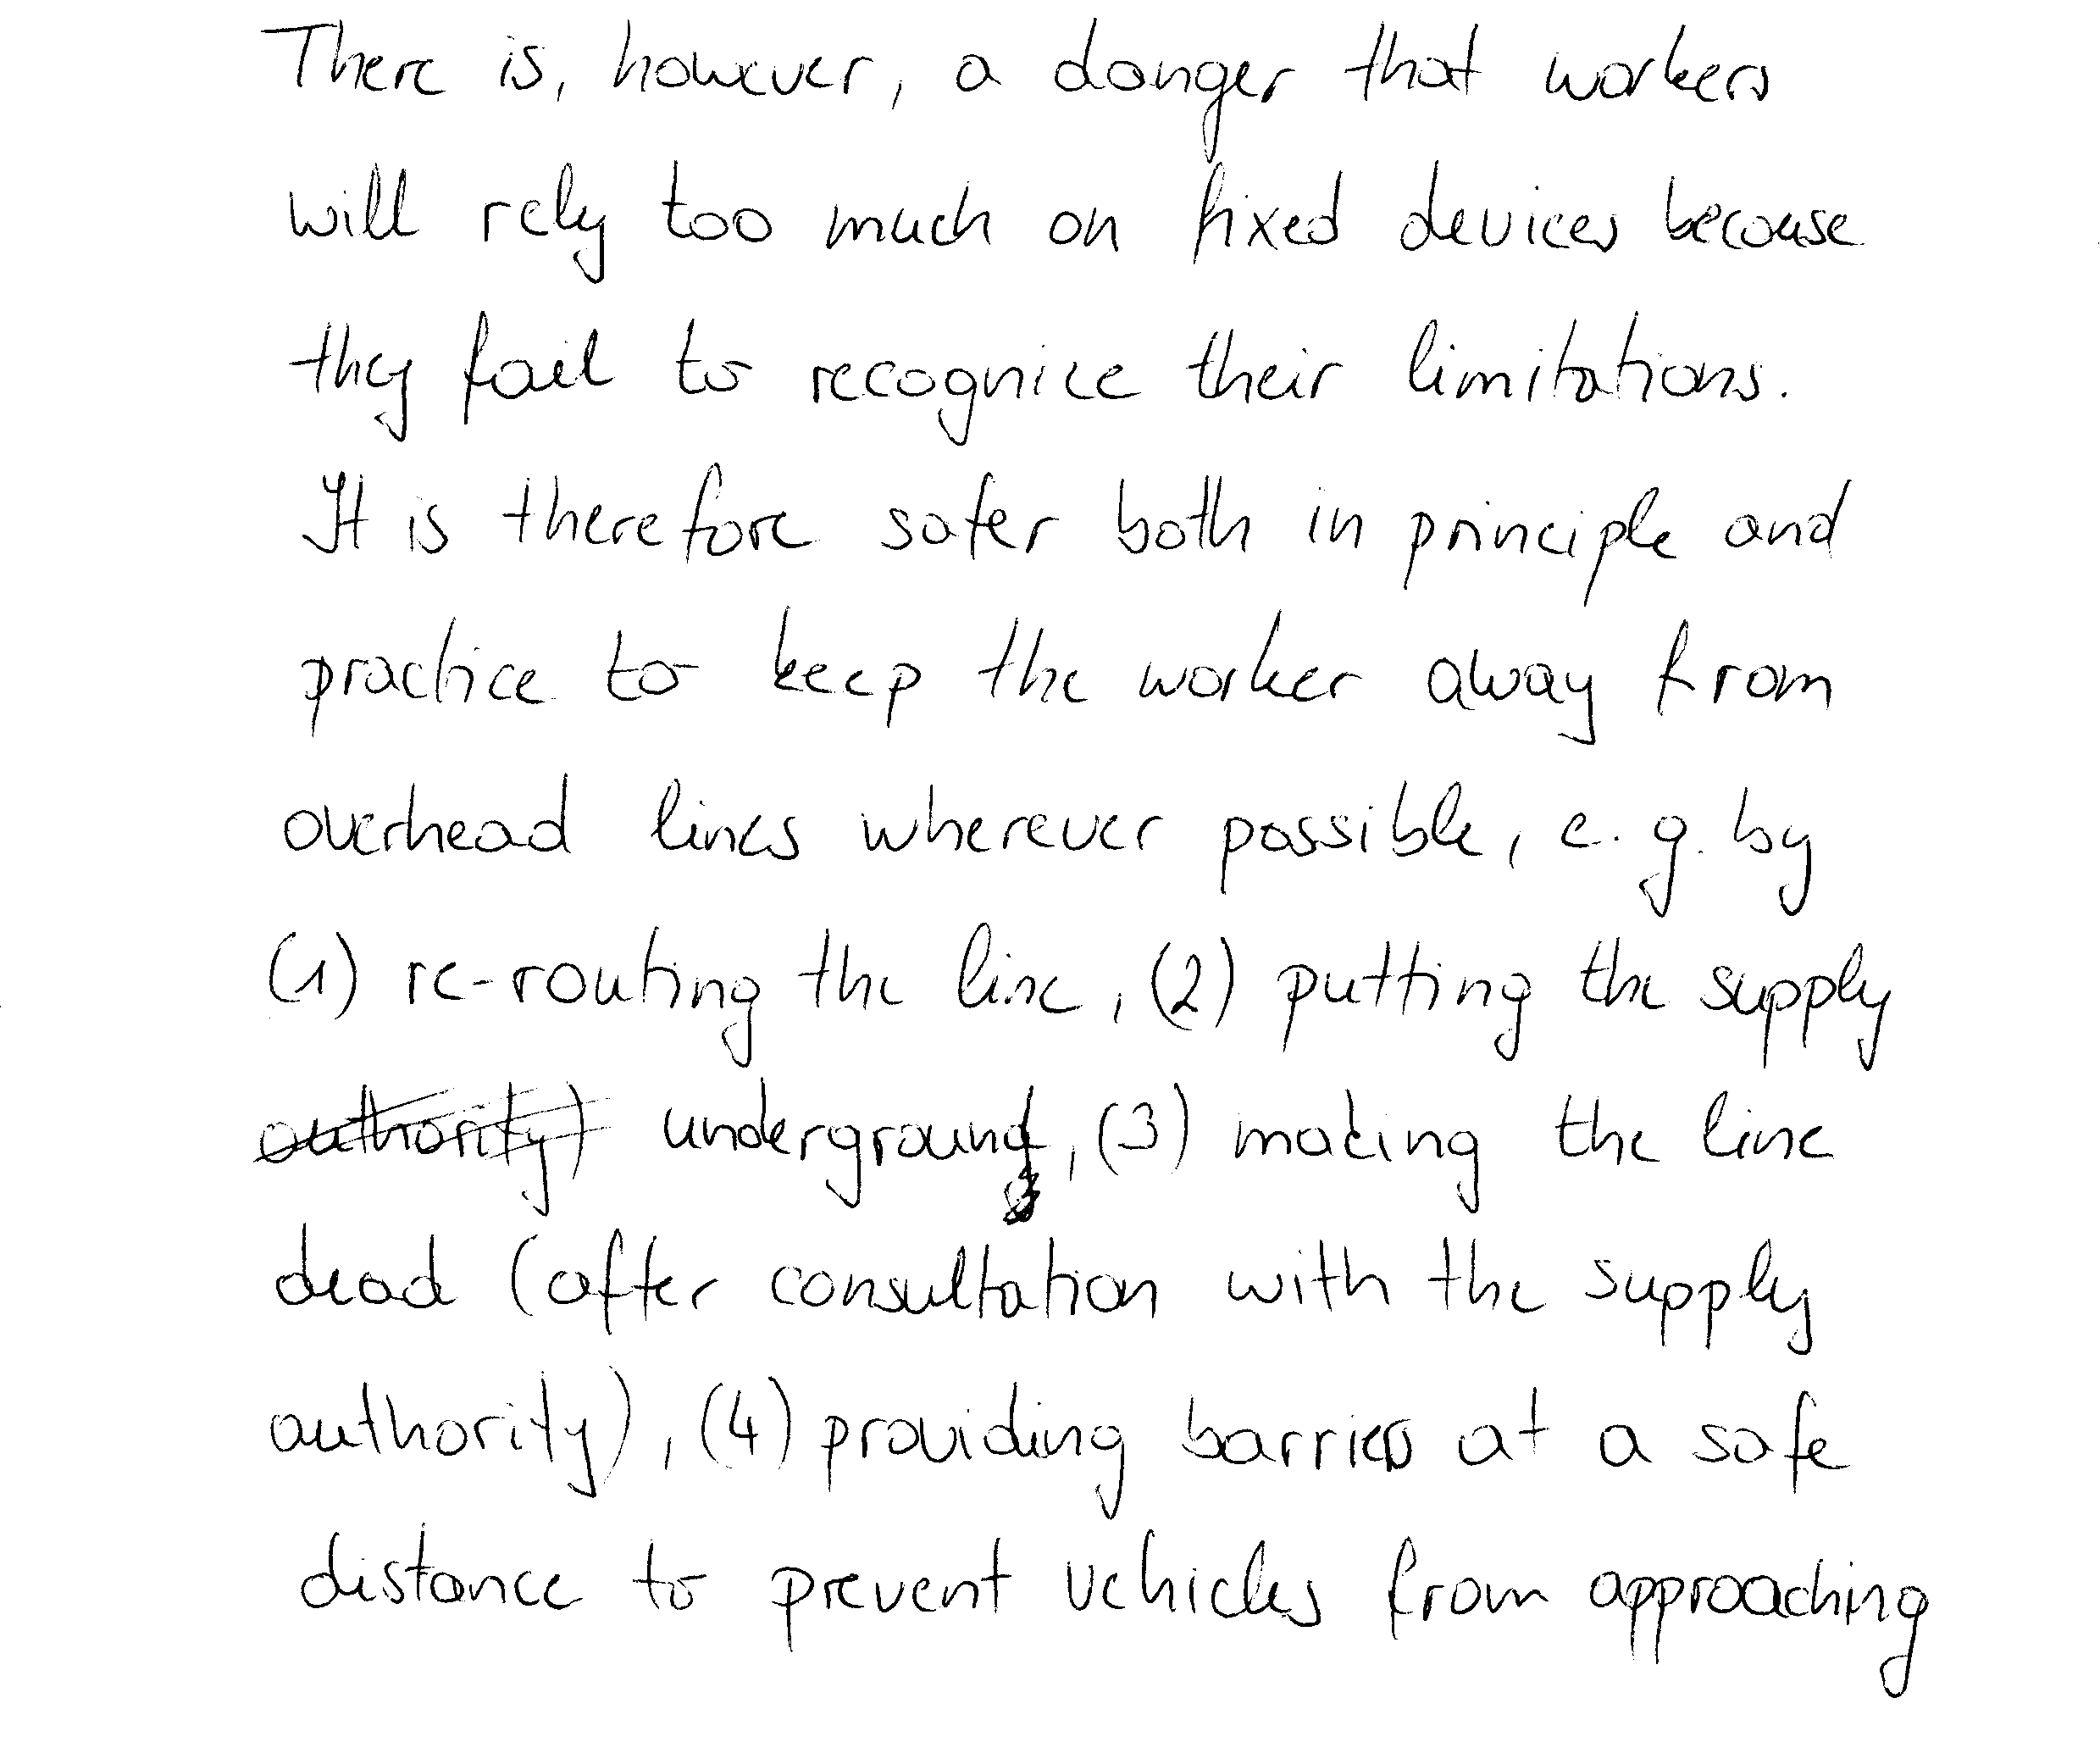 There is, however, a danger that workers
will rely too much on fixed devices because
they fail to recognize their limitations.
It is therefore safer both in principle and
practice to keep the worker away from
overhead lines wherever possible, e.g. by
(1) re-routing the line, (2) putting the supply
authority) underground, (3) making the line
dead (after consultation with the supply
authority), (4) providing barriers at a safe
distance to prevent vehicles from approaching